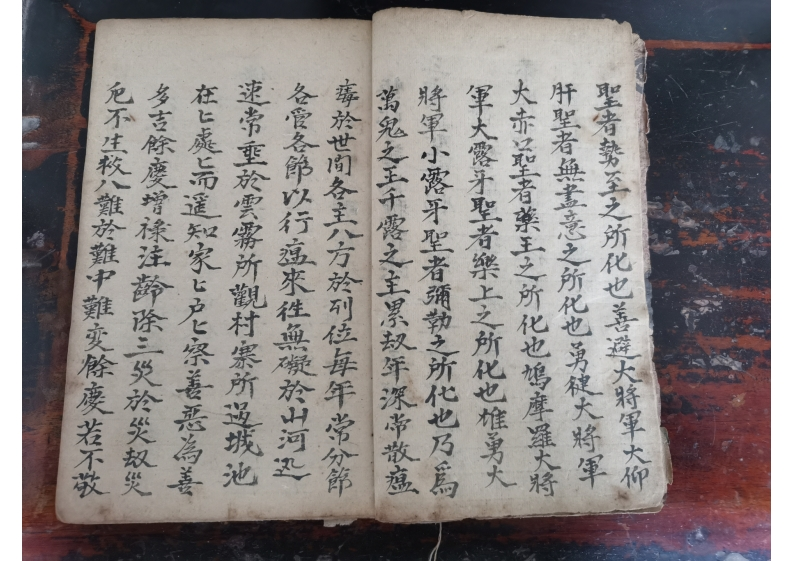 聖者勢至之所化也善避大將軍大仰
肝聖者無盡意之所化也勇健大將軍
大赤口聖者藥王之所化也鳩摩羅大將
軍大露牙聖者樂上之所化也雄勇大
將軍小露牙聖者彌勒之所化也乃爲
萬鬼之王千露之主累劫年深常散瘟
毒於世間各主八方於列位每年常分節
各管各節以行瘟來往無礙於山河迅
速常垂於雲霧所觀村寨所過城池
在匕處匕而暹知家匕户匕察善惡為善
多吉餘慶增祿注齡除三災於災劫災
厄不生救八難於難中難変餘慶若不敬